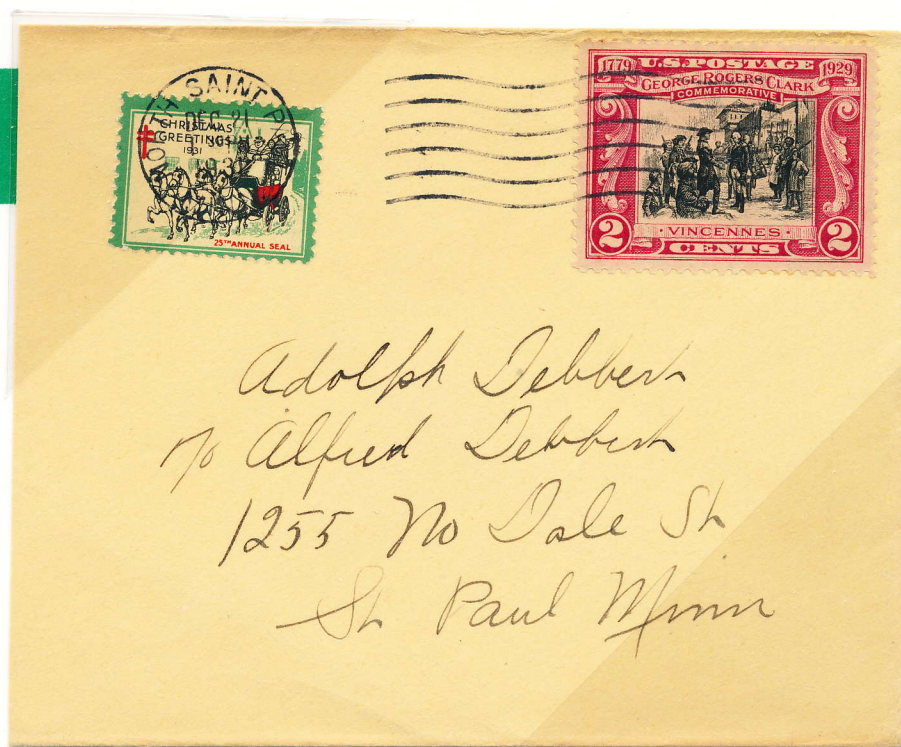 SAINT PAUL
DEC 21
193
NORTH
CHRISTMAS
GREETINGS
1931
25TH ANNUAL SEAL
1779 U.S. POSTAGE 1929
GEORGE ROGERS CLARK
COMMEMORATIVE
VINCENNES
2 CENTS 2
Adolph Debbert
c/o Alfred Debbert
1255 No Dale St
St Paul Minn